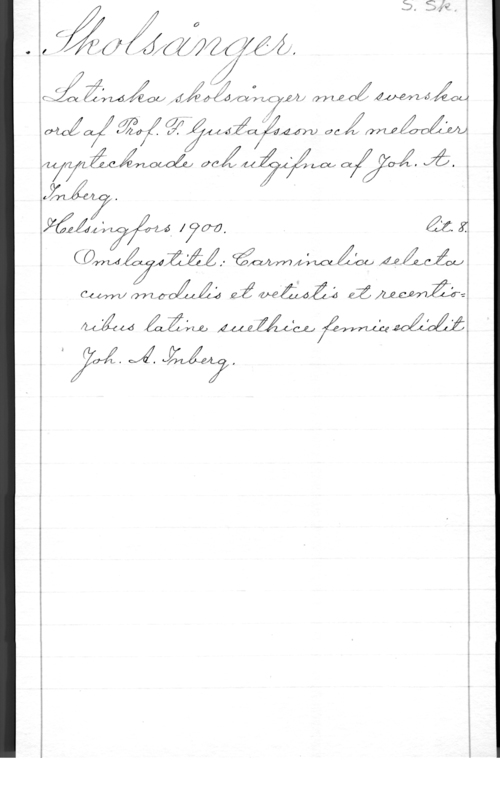 S. Sk.
Skolsånger.
Latinska skolsånger med svenska
ord af Prof. F. Gustafsson och melodier
upptecknade och utgifna af Joh. A.
Inberg.
Helsingfors 1900. lit. 8.
Omslagstitel: Carminalia selecta
cum modulis et vetustis et recentio=
ribus latine suethice fennice edidit
Joh. A. Inberg.